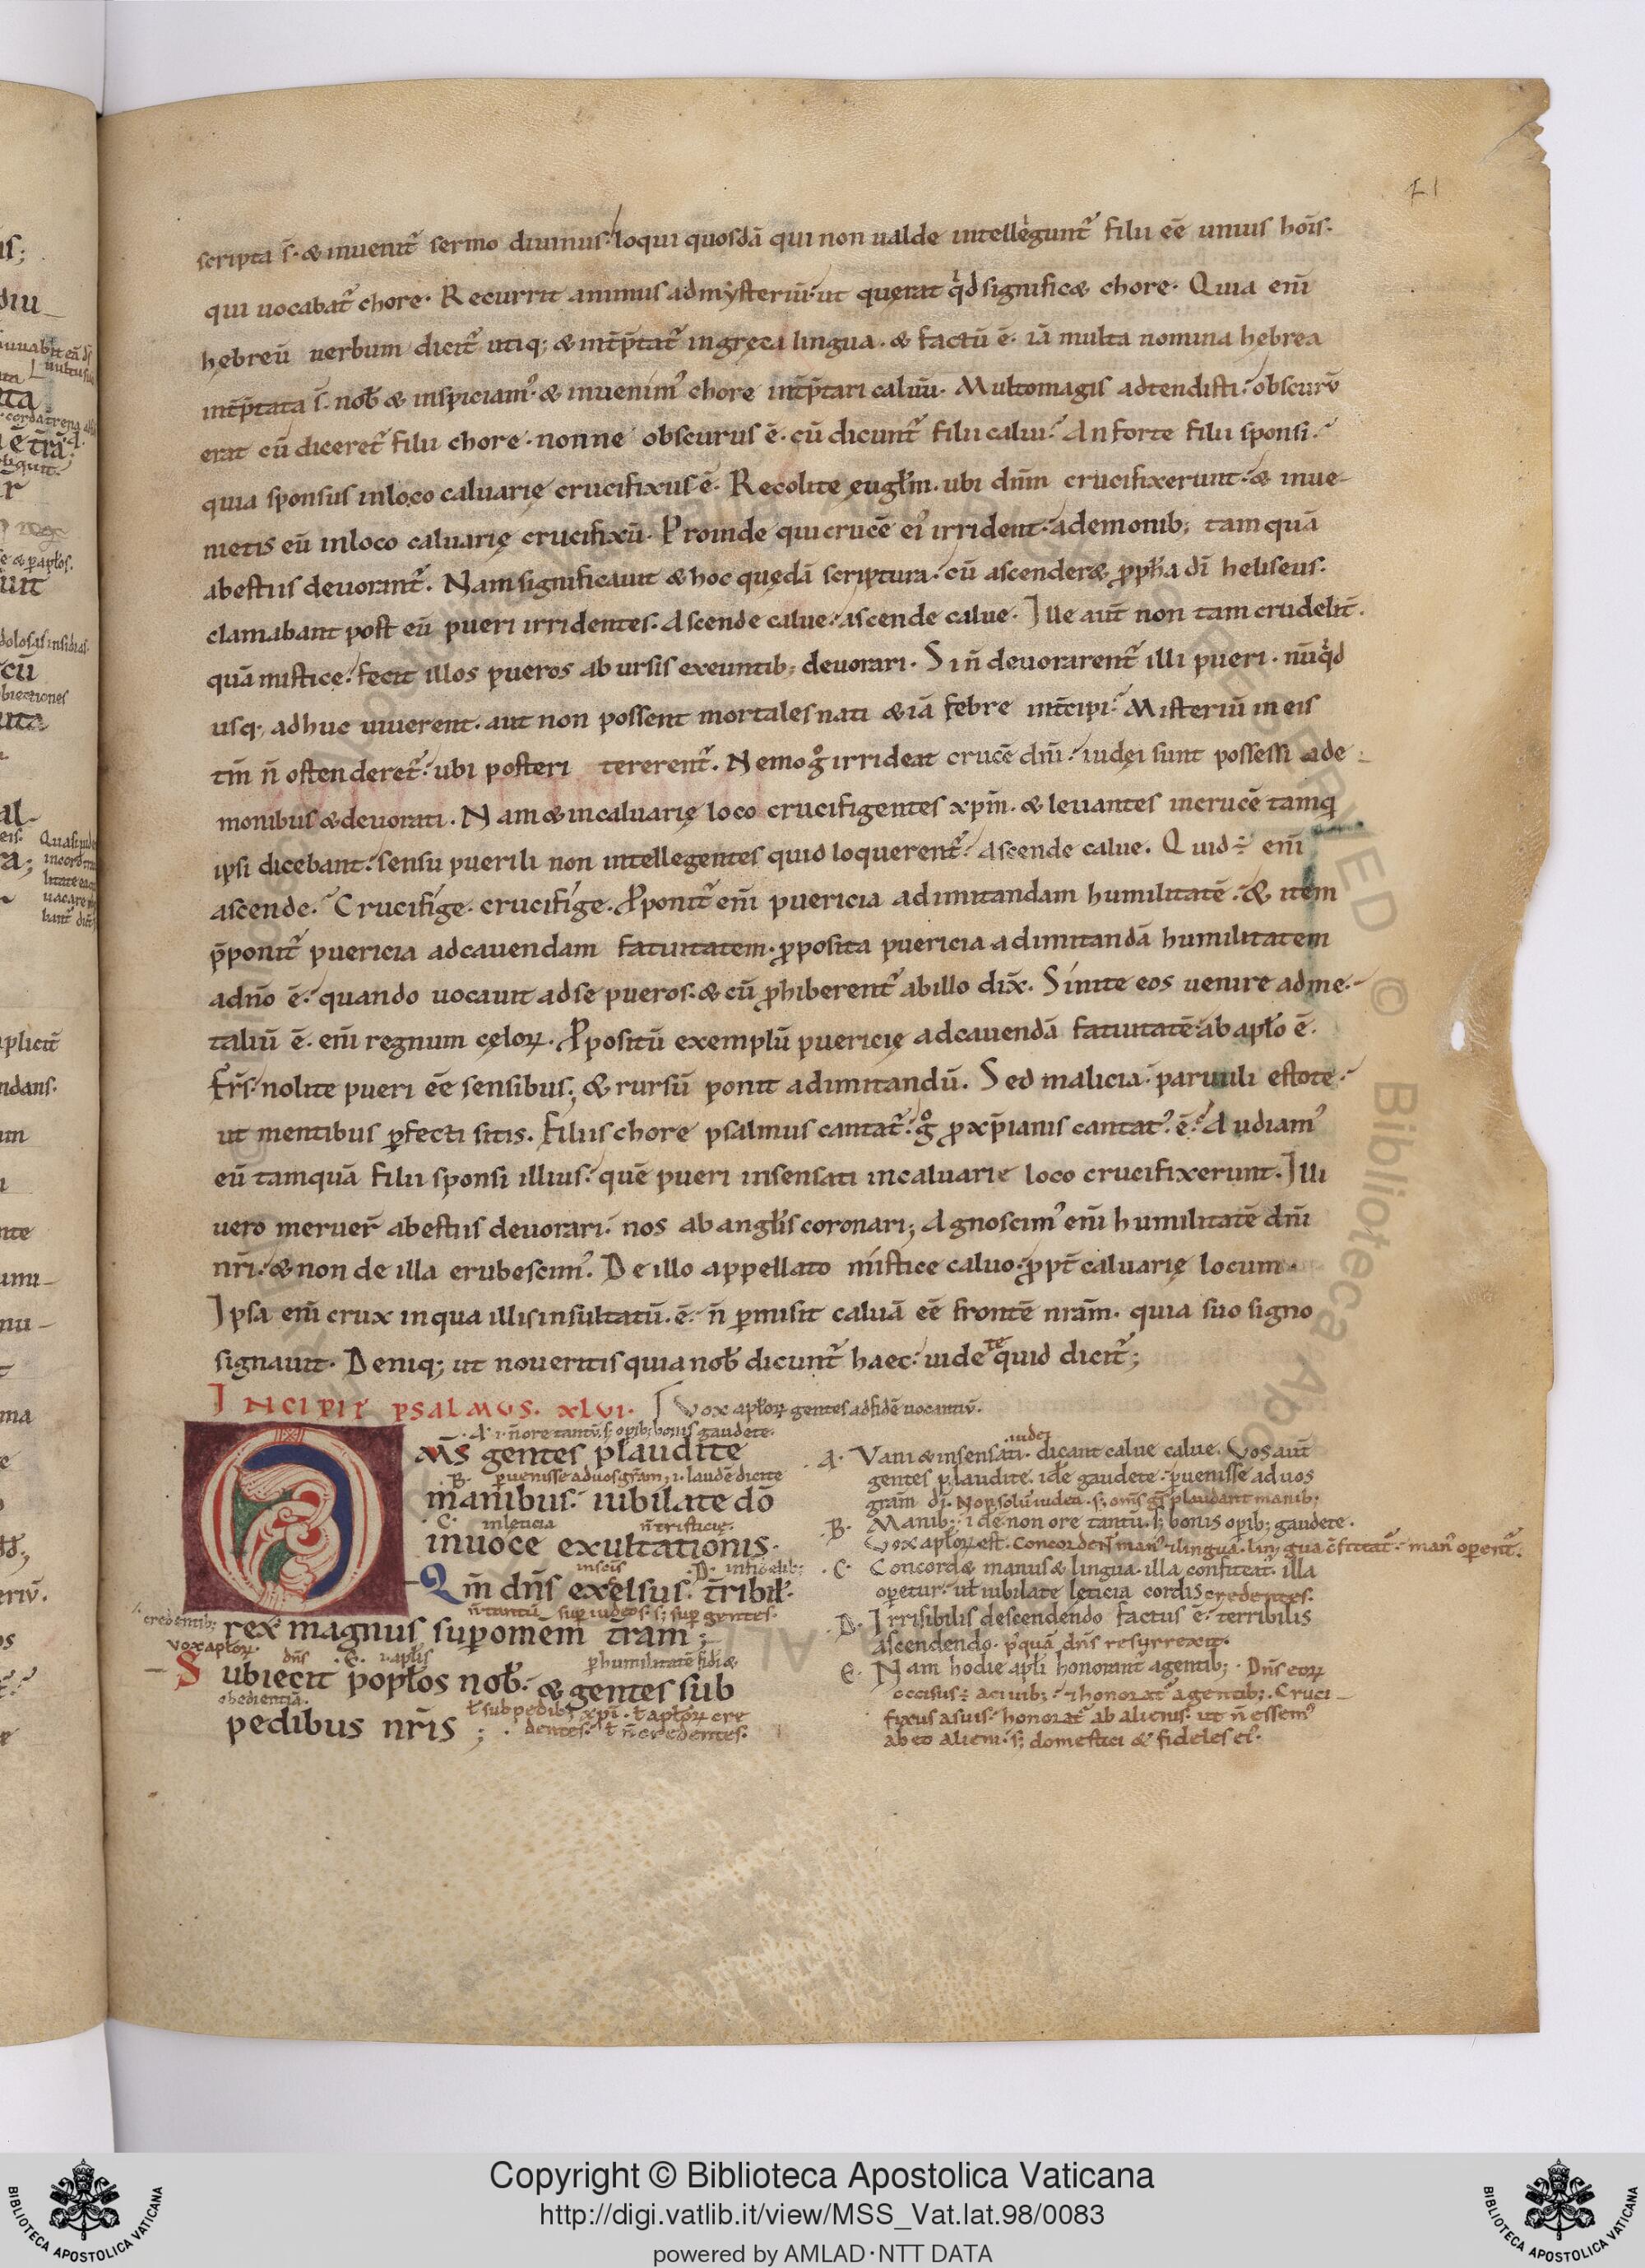 41
scripta s̄. & inuenit᷑ sermo diuinus. loqui quosdā qui non ualde intellegunt᷑ filii eē unius hoīs.
qui uocabat᷑ chore. Recurrit animus ad mysteriū. ut quęrat qͥd significæ chore. Quia enī
hebreū uerbum dicit᷑ utiq; & int̄p̄tat᷑ in gręca lingua. & factū ē. iā multa nomina hębrea
int̄p̄tata s̄. nob̄ & inspiciam᷒. & inuenim᷒ chore int̄p̄tari caluū. Multo magis adtendisti. obscurū
erat cū diceret᷑ filii chore. nonne obscurus ē. cū dicunt᷑ filii calui. An forte filii sponsi.
quia sponsus in loco caluarię crucifixus ē. Recolite ęugłm. ubi dn̄m crucifixerunt. & inue-
nietis eū in loco caluarię crucifixū. Proinde qui crucē ei᷒ irrident. a demonib; tam quā
a bestiis deuorant᷑. Nam significauit & hoc quędā scriptura. cū ascenderæ ꝓpha dī heliseus.
clamabant post eū pueri irridentes. Ascende calue. ascende calue. Ille aūt non tam crudelit̄.
quā mistice. fecit illos pueros ab ursis exeuntib; deuorari. Si n̄ deuorarent᷑ illi pueri. nūqͥd
usq; adhuc uiuerent. aut non possent mortales nati & iā febre int̄cipi. Misteriū in eis
tm̄ n̄ ostenderet᷑. ubi posteri tererent᷑. Nemo gͦ irrideat crucē dn̄i. iudęi sunt possessi a de-
monibus & deuorati. Nam & in caluarię loco crucifigentes xp̄m. & leuantes in crucē tamq̄
ipsi dicebant. sensu puerili non intellegentes quid loquerent᷑. Ascende calue. Quid ÷ enī
ascende. Crucifige. crucifige. Ꝓponit᷑ enī puericia ad imitandam humilitatē. & item
p̄ponit᷑ puericia ad cauendam fatuitatem. ꝓposita puericia ad imitandā humilitatem
a dn̄o ē. quando uocauit ad se pueros. & cū ꝓhiberent᷑ ab illo dix̄. Sinite eos uenire ad me.
taliū ē. enī regnum cęloꝝ. Ꝓpositū exemplū puericię ad cauendā fatuitatē. ab apło ē.
Fr̄s. nolite pueri eē sensibus; & rursū ponit ad imitandū. Sed malicia paruuli estote.
ut mentibus ꝑfecti sitis. Filiis chore psalmus cantat᷑. gͦ ꝓ xp̄ianis cantat᷒. ē. Audiam᷒
eū tamquā filii sponsi illius. quē pueri insensati in caluarie loco crucifixerunt. Illi
uero meruer̄ a bestiis deuorari. nos ab angłis coronari; Agnoscim᷒ enī humilitatē dn̄i
nr̄i. & non de illa erubescim᷒. De illo appellato mistice caluo. ꝓpt̄ caluarię locum.
Ipsa enī crux in qua illis insultatū. ē. n̄ ꝑmisit caluā eē frontē nr̄am. quia suo signo
signauit. Deniq; ut noueritis quia nob̄ dicunt᷑ haec. uidete quid dicit᷑;
INCIPIT PSALMUS. XLVI. Vox apłoꝝ gentes ad fidē uocantiū.
.A. i. n̄ ore tantū. s; opib; bonis gaudete.
OMS gentes plaudite
.B. ꝑuenisse ad uos grām; i. laudē dicite
manibus. iubilate dō
.C. in leticia n̄ tristicię.
in uoce exultationis.
.D. infidelib;
Qm̄ dn̄s excelsus. t̄ribil̄.
credentib; n̄ tantū sup iudęos. s; sup gentes.
rex magnus sup omem̄ t̄ram;
Vox apłoꝝ. dn̄s .E. i. aplīs ꝑ humilitatē fidi &
Subiecit popłos nob̄. & gentes sub
obedientiā. ł sub pedib; xp̄i. ł apłoꝝ cre
pedibus nr̄is; dentes. ł n̄ credentes.
iudei
.A. Vani & insensati. dicant calue calue. Vos aūt
gentes plaudite. id ē gaudete. ꝑuenisse ad uos
grām dī. Non solū iudei. s; om̄s gs̄ plaudant manib;
.B. Manib; id ē non ore tantū. s; bonis opib; gaudete.
Vox apłoꝝ est. Concordent man᷒ & lingua. lingua c̄fiteat᷑. man᷒ operent᷑.
.C. Concordæ manus & lingua. illa confiteat᷑. illa
operetur. uł iubilate leticia cordis credentes.
.D. Irrisibilis descendendo factus ē. terribilis
ascendendo. p᷒quā dn̄s resurrexit.
.E. Nam hodie apłi honorant᷑ a gentib;. Dn̄s eoꝝ
occisus ÷ a ciuib;. & honorat᷑ a gentib;. Cruci-
fixus a suis. honorat᷑ ab alienis. ut n̄ essem᷒
ab eo alieni. s; domestici & fideles ei᷒.
© Biblioteca Apostolica Vaticana
ALL RIGHTS RESERVED
Copyright © Biblioteca Apostolica Vaticana
http://digi.vatlib.it/view/MSS_Vat.lat.98/0083
powered by AMLAD·NTT DATA
BIBLIOTECA APOSTOLICA VATICANA
BIBLIOTECA APOSTOLICA VATICANA